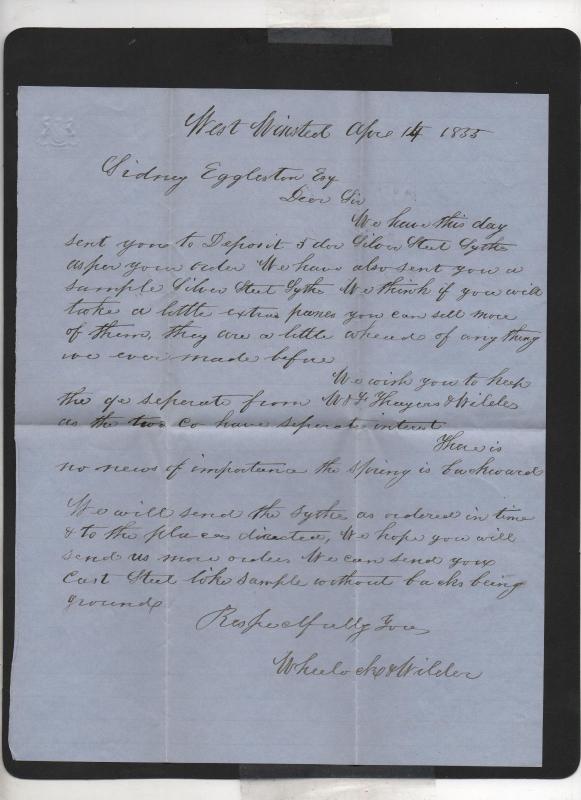 West Winsted Apre 14 1855
Sidney Eggleston Esq
Dear Sir
We have this day
sent you to Deposit 5 doz Silver Steel Sythe
as per your order We have also sent you a
sample Silver Steel Sythe We think if you will
take a little extra panes you can sell more
of them, they are a little ahead of any thing
we ever made before
We wish you to keep
the seperate from Thayers & Wilder
as the two Co have seperate interest
There is
no news of importance the spring is backward
We will send the Sythe as ordered in time
& to the places directed, We hope you will
send us more orders We can send you
Cast Steel like sample without backs being
ground
Respectfully Yours
Wheelock & Wilder